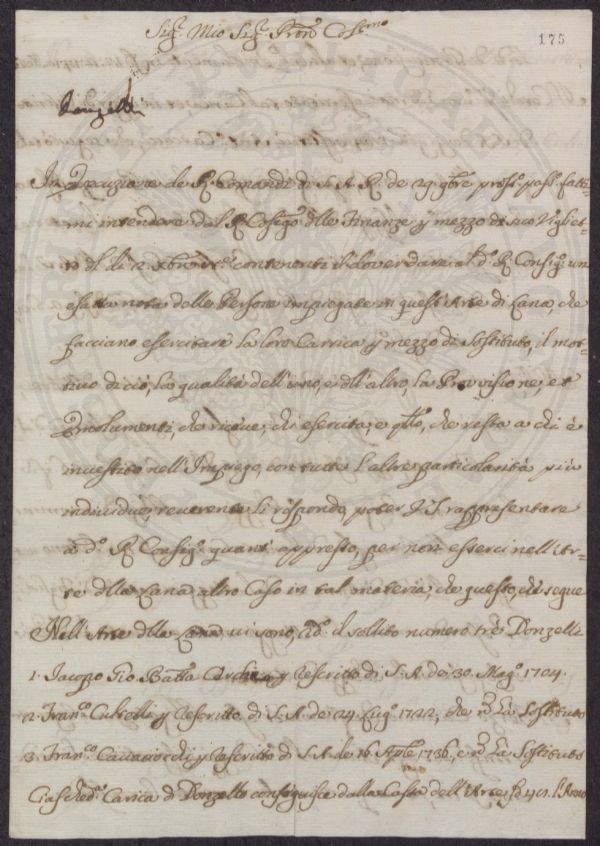 Sig.r Mio Sig.r Pron.e Col.mo
175
Donzelli
In Esecuzione de R. Comandi di S. A. R. de 29 9bre pross.o pass.o fatti-
mi intendere dal R. Consig.o delle Finanze p mezzo di suo Vigliet-
to contenenti il dover dare al d.o R. Consig.o un
esatta nota delle Persone impiegate in quest'Arte di Lana, che
facciano esercitare la loro Carrica p mezzo di Sostituto, il mot-
tivo di ciò, la qualità dell'uno, e dll'altro, la Provisione, et
Emolumenti, che riceve, chi esercita, e qllo, che resta a chi è
investito nell'Impiego, con tutte l'altre particolarità più
individue, reverente Li rispondo, poter V.S. rappresentare
a d.o R. Consig.o quant'appresso, per non esserci nell'Ar-
te dlla Lana altro Caso in tal materia, che questo, che segue
Nell'Arte dlla Lana vi sono, il solito numero tre Donzelli
1. Jacopo Gio Batta p rescritto di S. A. de 30 Mag.o 1704.
2. Fran.co p rescritto di S. A. de 24 Lug.o 1722, che Sostituto
3. Fran.co p rescritto di S. A. de 16 Aple 1736, e Sostituto
Ciasched.a Carica di Donzello conseguisce dalla Cassa dell'Arte